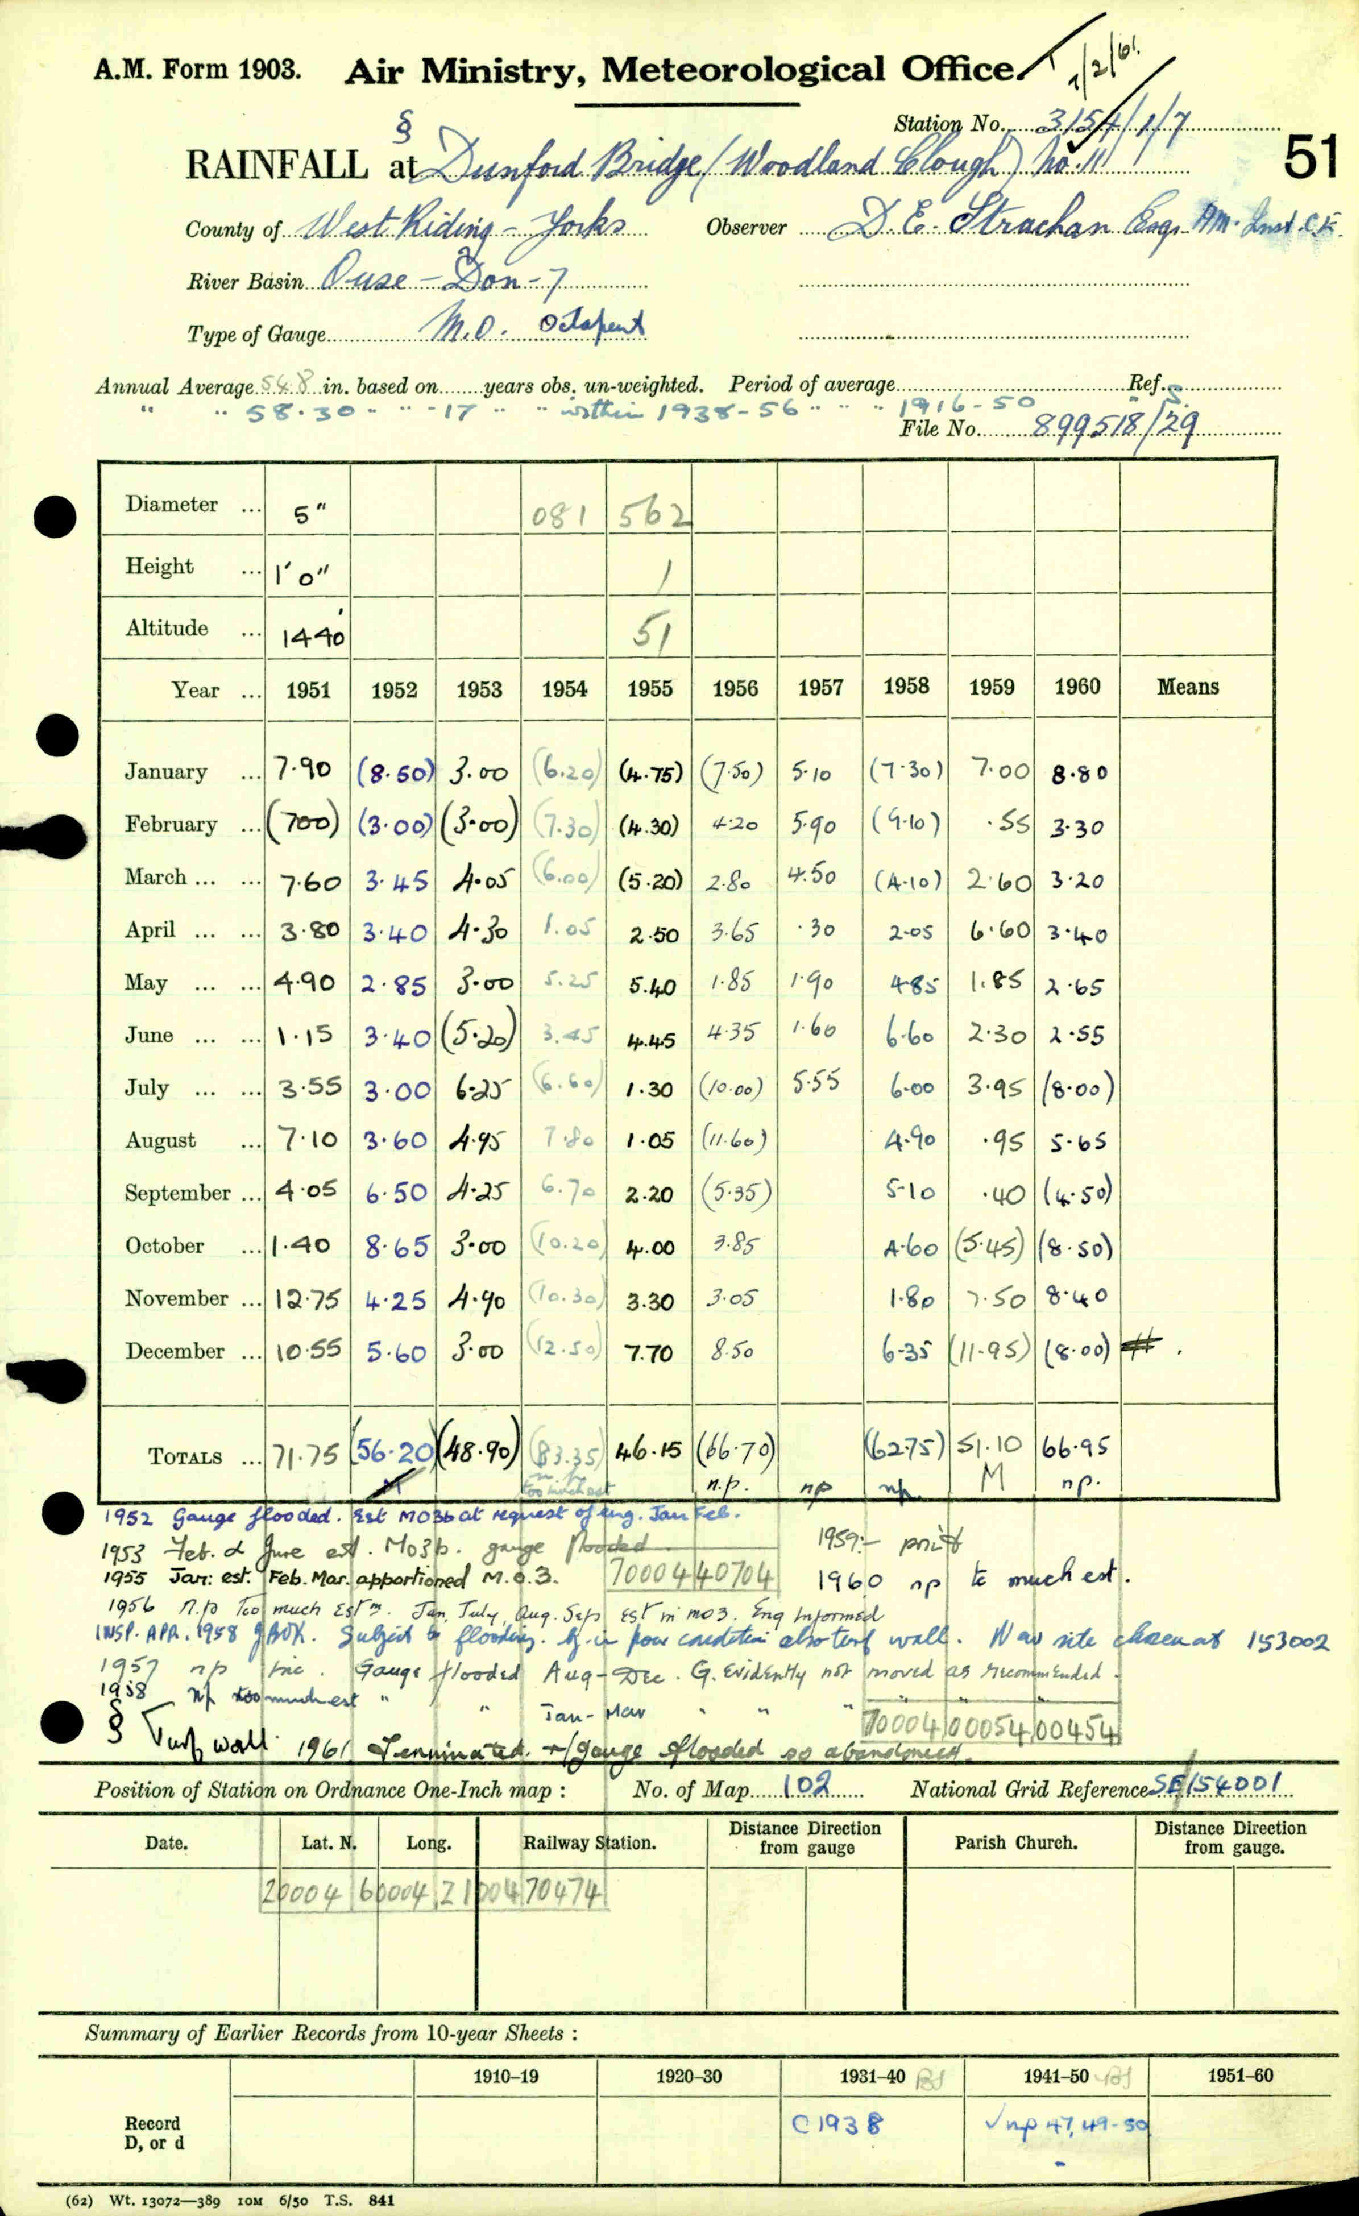 A.M. Form 1903. Air Ministry, Meteorological Office. 7/2/61.
Station No. 3154/1/7
51
§
RAINFALL at Dunford Bridge (Woodland Clough) No. 11
County of West Riding - Yorks Observer D.E. Strachan Esq. AM. Inst. C.E.
River Basin Ouse - Don - 7
Type of Gauge M.O. Octapent
Annual Average 54.8 in. based on years obs. un-weighted. Period of average Ref.
" " 58.30 " " -17 " " within 1938-56 " " " 1916-50 " S.
File No. 899518/29
Diameter ... 5" 081 562
Height ... 1'0" 1
Altitude ... 1440' 51
Year ... 1951 1952 1953 1954 1955 1956 1957 1958 1959 1960 Means
January ... 7.90 (8.50) 3.00 (6.20) (4.75) (7.50) 5.10 (7.30) 7.00 8.80
February ... (7.00) (3.00) (3.00) (7.30) (4.30) 4.20 5.90 (9.10) .55 3.30
March ... ... 7.60 3.45 4.05 (6.00) (5.20) 2.80 4.50 (4.10) 2.60 3.20
April ... ... 3.80 3.40 4.30 1.05 2.50 3.65 .30 2.05 6.60 3.40
May ... ... 4.90 2.85 3.00 5.25 5.40 1.85 1.90 4.85 1.85 2.65
June ... ... 1.15 3.40 (5.20) 3.45 4.45 4.35 1.60 6.60 2.30 2.55
July ... ... 3.55 3.00 6.25 (6.60) 1.30 (10.00) 5.55 6.00 3.95 (8.00)
August ... 7.10 3.60 4.95 7.80 1.05 (11.60) 4.90 .95 5.65
September ... 4.05 6.50 4.25 6.70 2.20 (5.35) 5.10 .40 (4.50)
October ... 1.40 8.65 3.00 (10.20) 4.00 3.85 4.60 (5.45) (8.50)
November ... 12.75 4.25 4.90 (10.30) 3.30 3.05 1.80 7.50 8.40
December ... 10.55 5.60 3.00 (12.50) 7.70 8.50 6.35 (11.95) (8.00)
TOTALS ... 71.75 (56.20) (48.90) (83.35) 46.15 (66.70) (62.75) 51.10 66.95
n.p. n.p. np np. M np.
too much est
1952 Gauge flooded. Est MO3b at request of Eng. Jan Feb.
1953 Feb. & June est. MO3b. gauge flooded. 1959:- print
1955 Jan: est. Feb. Mar. apportioned M.O.3. 70004 40704 1960 np to much est.
1956 n.p Too much Estn. Jan, July, Aug. Sep est in mo3. Eng Informed
INSP. APR. 1958 Subject to flooding. G. in poor condition also turf wall. New site chosen at 153002
1957 np inc. Gauge flooded Aug-Dec. G. Evidently not moved as recommended.
1958 np too much est " " Jan-Mar " " "
70004 00054 00454
§ Turf wall. 1961 Terminated. Gauge flooded so abandoned.
Position of Station on Ordnance One-Inch map : No. of Map 102 National Grid Reference SE/154001
Date. Lat. N. Long. Railway Station. Distance Direction from gauge Parish Church. Distance Direction from gauge.
20004 60004 21004 70474
Summary of Earlier Records from 10-year Sheets :
1910-19 1920-30 1931-40 1941-50 1951-60
Record D, or d C1938 √ np 47, 49-50
(62) Wt. 13072—389 10M 6/50 T.S. 841